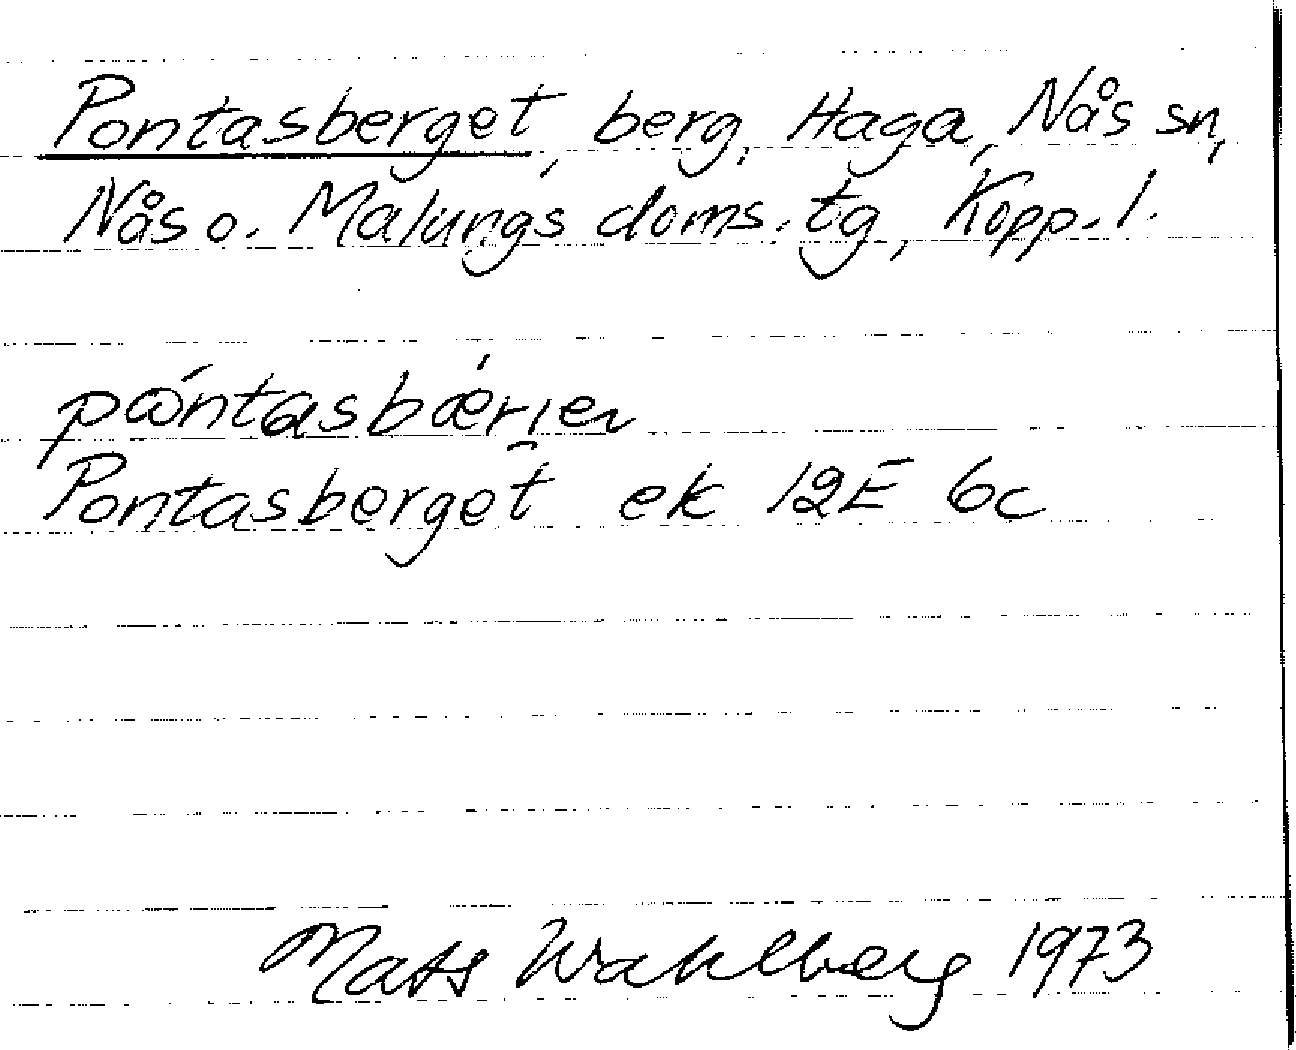 Pontasberget, berg, Haga, Nås sn,
Nås o. Malungs doms. tg, Kopp. l.
Pontasberget ek 12E 6c
Mats Wahlberg 1973